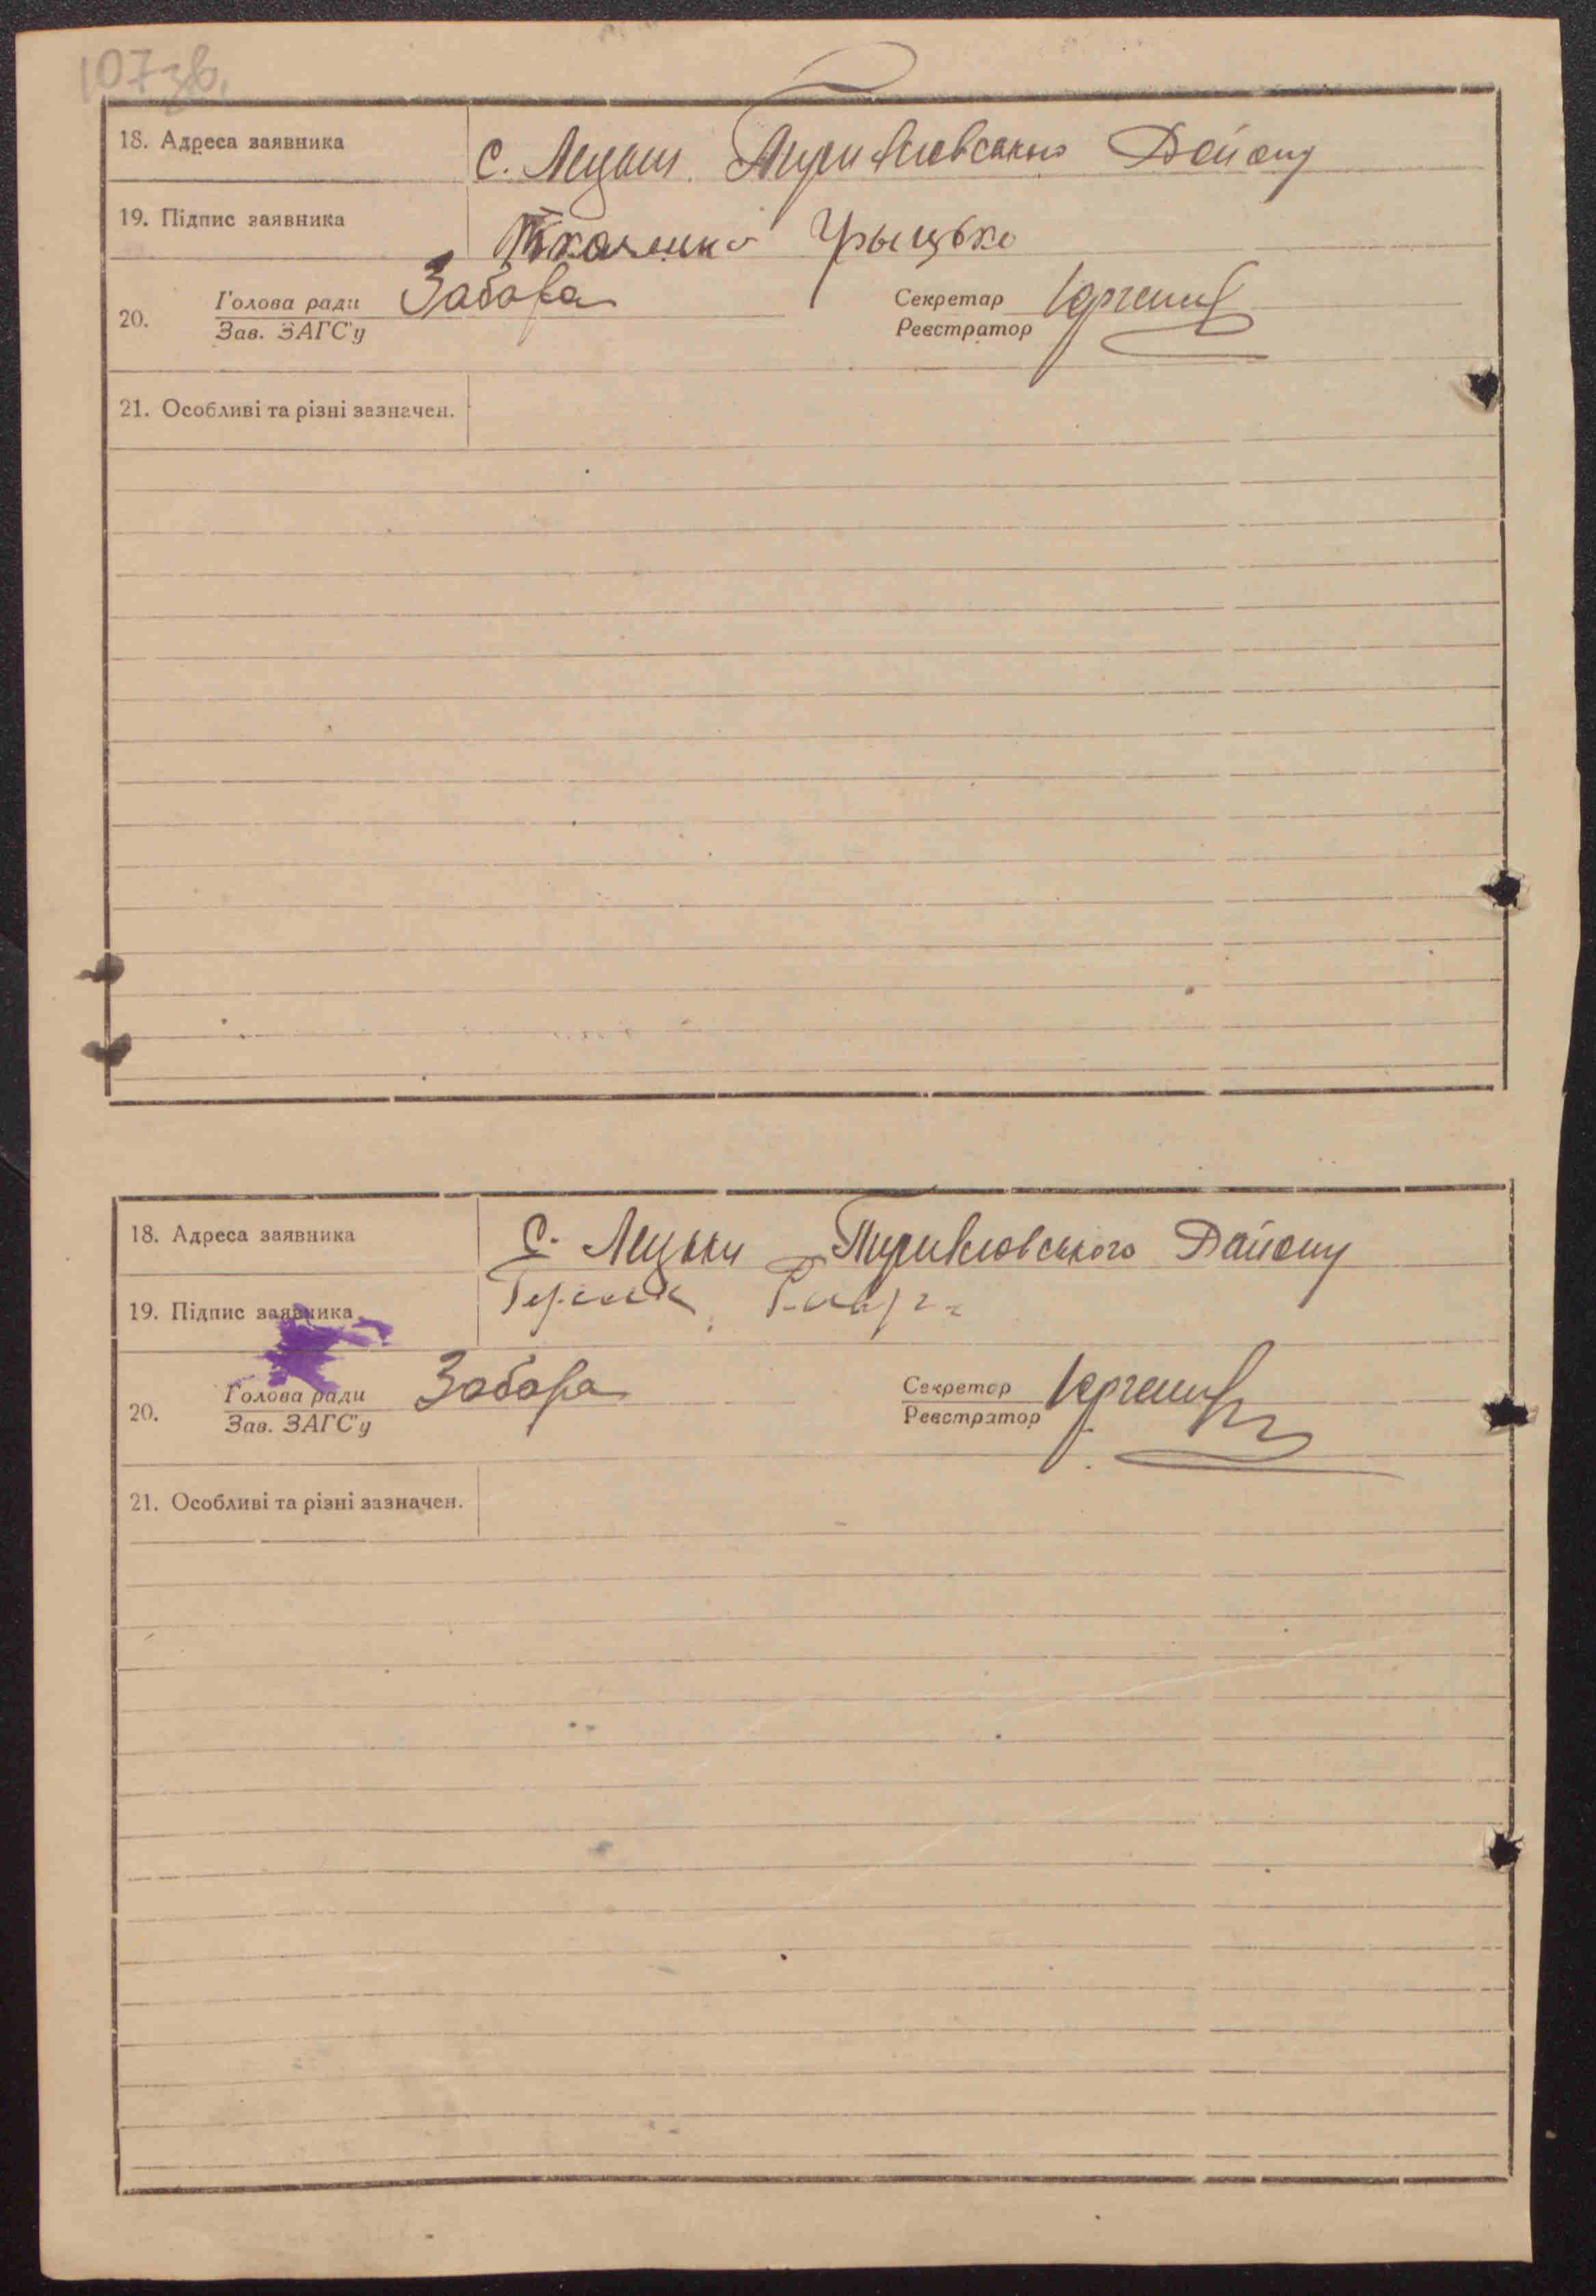 107 зв.
18. Адреса заявника С. Мацьки Району
19. Підпис заявника Ткаченко Грыцько
20. Голова ради Забара Секретар
Зав. ЗАГС'у Реєстратор
21. Особливі та різні зазначен.
18. Адреса заявника С. Мацьки Району
19. Підпис заявника
20. Голова ради Забара Секретар
Зав. ЗАГС'у Реєстратор
21. Особливі та різні зазначен.